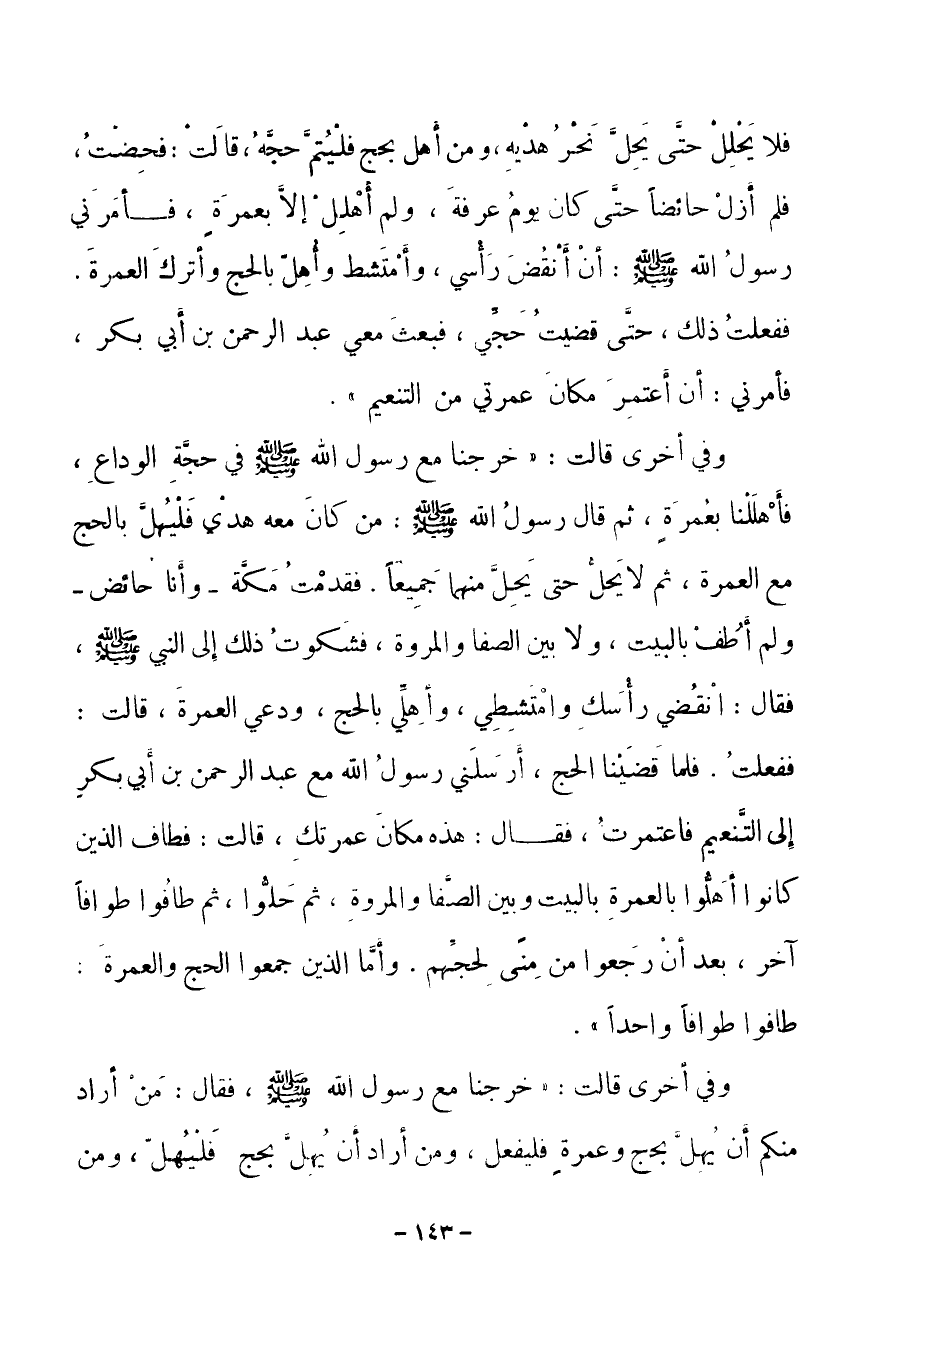 فلا يَحْلِلْ حتَّى يَحِلَّ نَحْرُ هدْيِهِ، ومن أهل بحج فلْيُتمَّ حجَّهُ، قالَتْ: فحِضْتُ،
فلم أزلْ حائضاً حتَّى كان يومُ عرفةَ، ولم أُهْلِلْ إلاَّ بعمرَةٍ، فـأمَرَني
رسولُ الله ﷺ: أنْ أنْقُضَ رَأْسي، وأمْتَشط وأُهِلّ بالحج وأتركَ العمرةَ.
ففعلتُ ذلك، حتَّى قضيتُ حَجِّي، فبعثَ معي عبد الرحمن بن أبي بكر،
فأمرني: أن أعتمِرَ مكانَ عمرتي من التنعيم».
وفي أخرى قالت: «خرجنا مع رسول الله ﷺ في حجَّةِ الوداعِ،
فأهْلَلْنا بعُمرَةٍ، ثم قال رسولُ الله ﷺ: من كانَ معه هدْي فَلْيُهِلَّ بالحج
مع العمرة، ثم لا يَحلُّ حتى يَحِلَّ منهما جَميعاً. فقدمْتُ مَكَّة - وأنا حائض -
ولم أطُفْ بالبيت، ولا بين الصفا والمروة، فشَكوتُ ذلك إلى النبي ﷺ،
فقال: انْقُضي رأْسَكِ وامْتَشِطِي، وأهِلِّي بالحج، ودعي العمرةَ، قالت:
ففعلتُ. فلما قَضَيْنا الحج، أرْسَلَني رسولُ الله مع عبد الرحمن بن أبي بكرٍ
إلى التَّنعيم فاعتمرتُ، فقـال: هذه مكانَ عمرتكِ، قالت: فطاف الذين
كانوا أهَلُّوا بالعمرةِ بالبيت وبين الصَّفا والمروةِ، ثم حَلُّوا، ثم طافُوا طوافاً
آخر، بعد أنْ رَجعوا من مِنًى لِحجِّهم. وأمَّا الذين جمعوا الحج والعمرةَ:
طافوا طوافاً واحداً».
وفي أخرى قالت: «خرجنا مع رسول الله ﷺ، فقال: مَنْ أراد
منكم أن يُهِلَّ بحج وعمرةٍ فليفعل، ومن أراد أن يُهِلَّ بحج فَلْيُهلّ، ومن
- ١٤٣ -